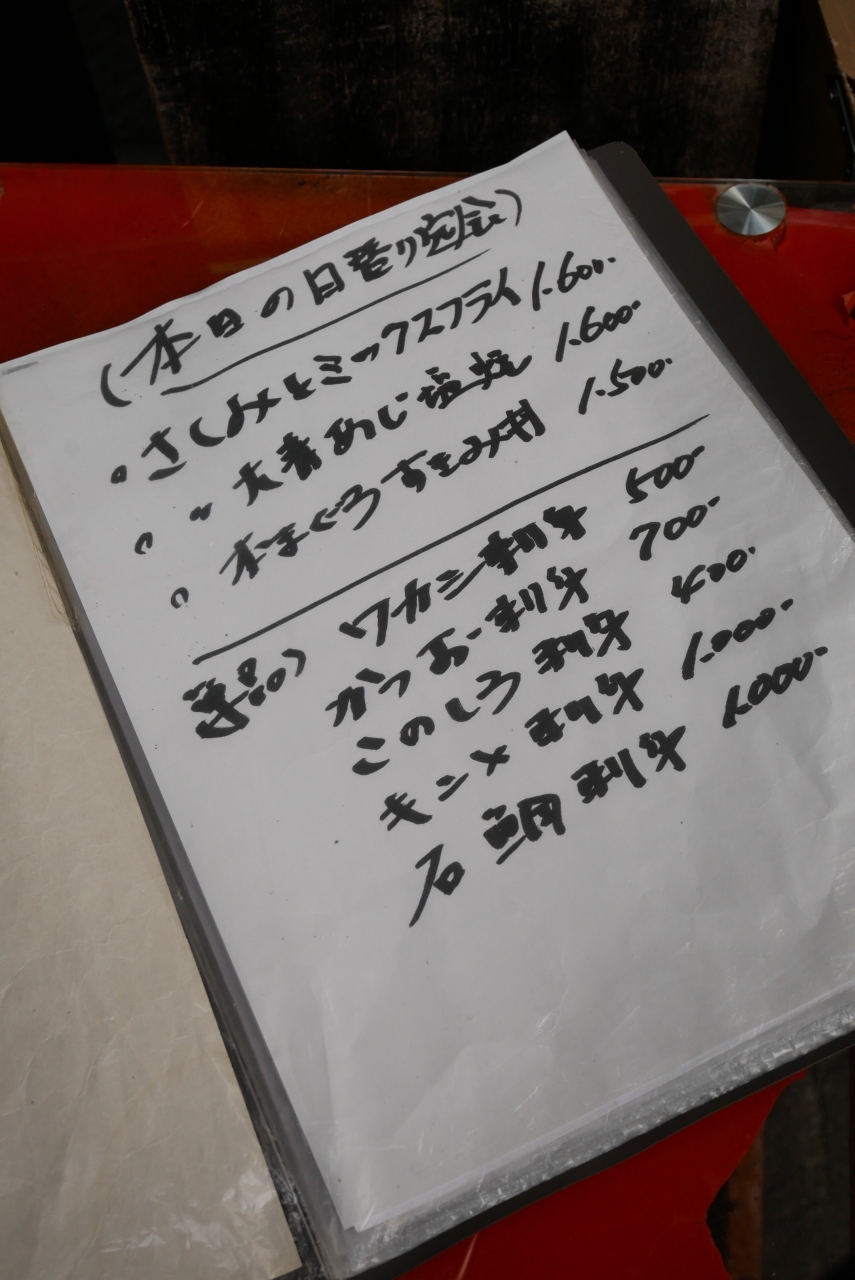 (本日の日替り定食)
• さしみとミックスフライ 1.600-
• 〃 大青あじ塩焼 1.600-
• 本まぐろすきみ丼 1.500-
単品) ワカシ刺身 500-
かつお刺身 700-
このしろ刺身 400-
キンメ刺身 1.000-
石鯛刺身 1.000-